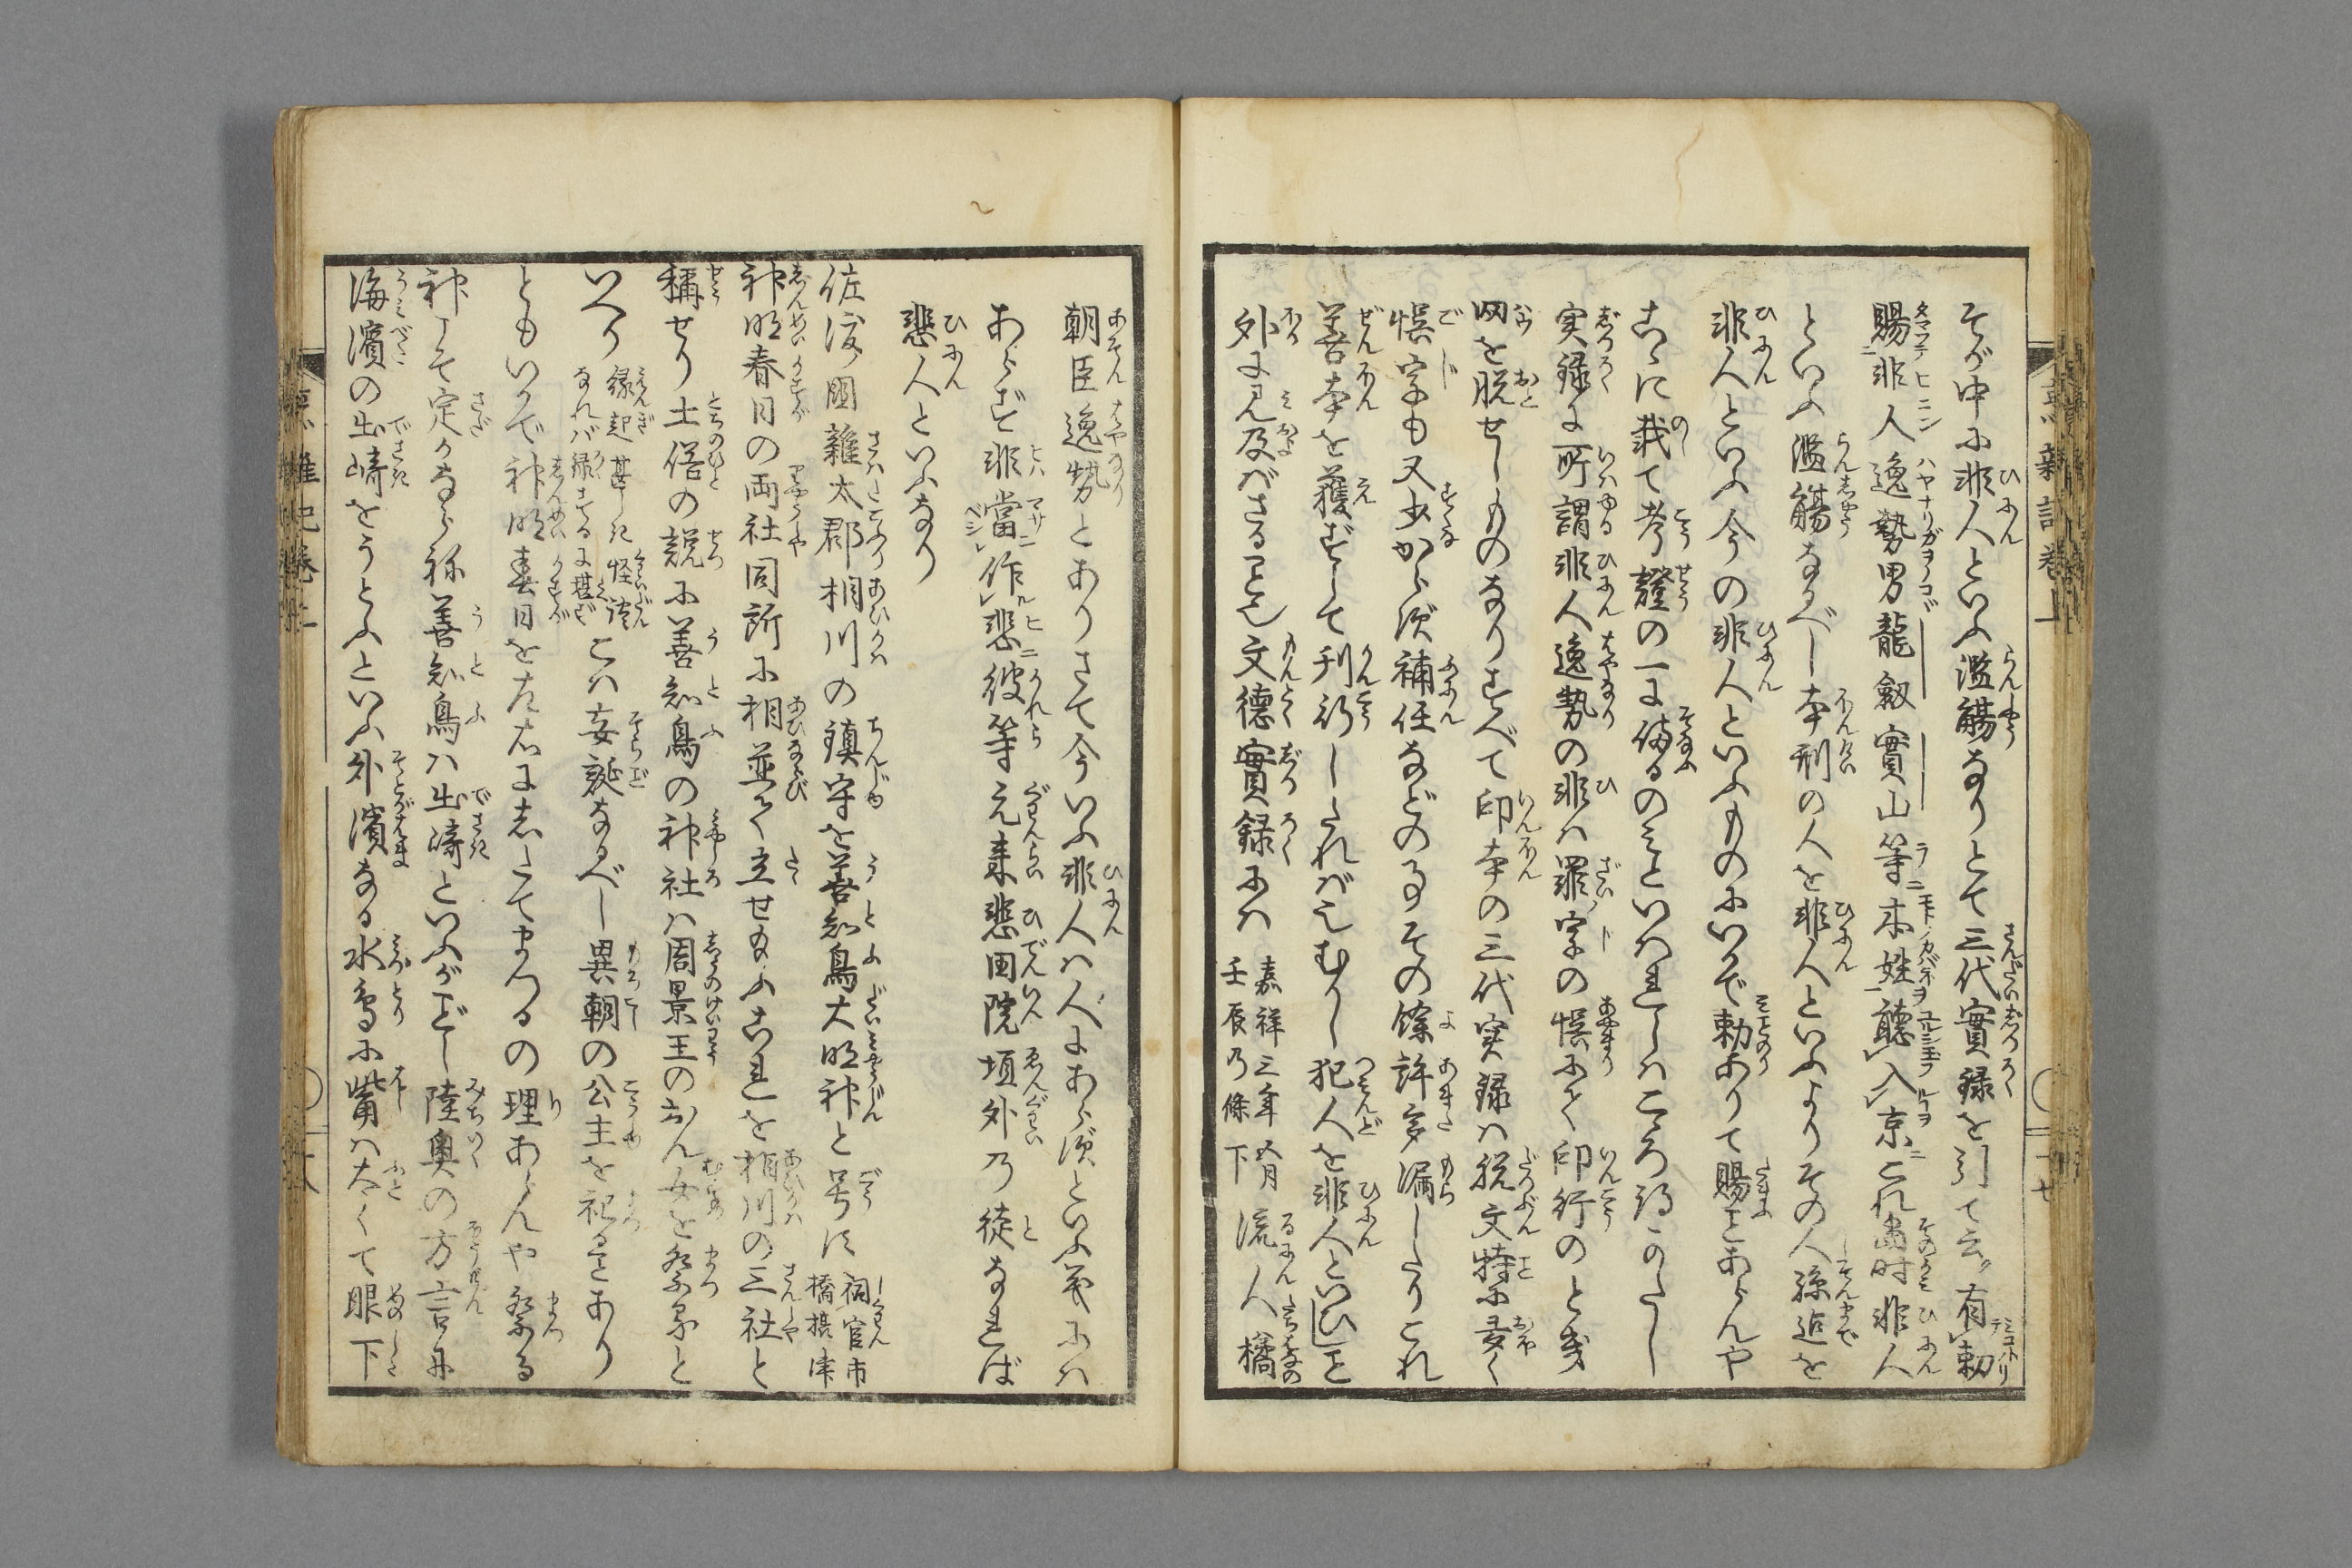 そが中に非人といふ濫觴なりとて三代實録を引て云ク有勅
賜非人逸勢男龍剱實山等本姓聴入京これ當時非人
といふ濫觴なるべし本刑の人を非人といふよりその人孫迄を
非人といふ今の非人といふものにいかで勅ありて賜ことあらんや
こゝに載て考證の一に備るのみといはれしはこゝろ得かたし
実録に所謂非人逸勢の非は罪字の悞にて印行のとき
网を脱せしものなりすべて印本の三代実録は脱文特に多く
悞字も又少からず補任などの事その餘許多漏したりこれ
善本を獲ずして刊行したればなりむかし犯人を非人といひしこと
外に見及ばざること也文德實録には嘉祥三年五月壬辰乃條下流人橘
朝臣逸勢とありさて今いふ非人は人にあらずといふ義には
あらず非當作悲彼等元來悲田院垣外乃徒なれば
悲人といふなり
佐渡國雜太郡相川の鎮守を善知鳥大明神と号す祠官市橋摂津
神明春日の両社同所に相並て立せ給ふこれを相川の三社と
稱せり土俗の説に善知鳥の神社は周景王のおん女を祭ると
いへり縁起甚しき怪談なれば録するに堪ずこは妄誕なるべし異朝の公主を祀ることあり
ともいかで神明春日を左右にしたてまつるの理あらんや祭る
神しそ定かならね善知鳥は出崎といふがごとし陸奥の方言に
海濱の出崎をうとふといふ外濱なる水鳥に觜は太くて眼下